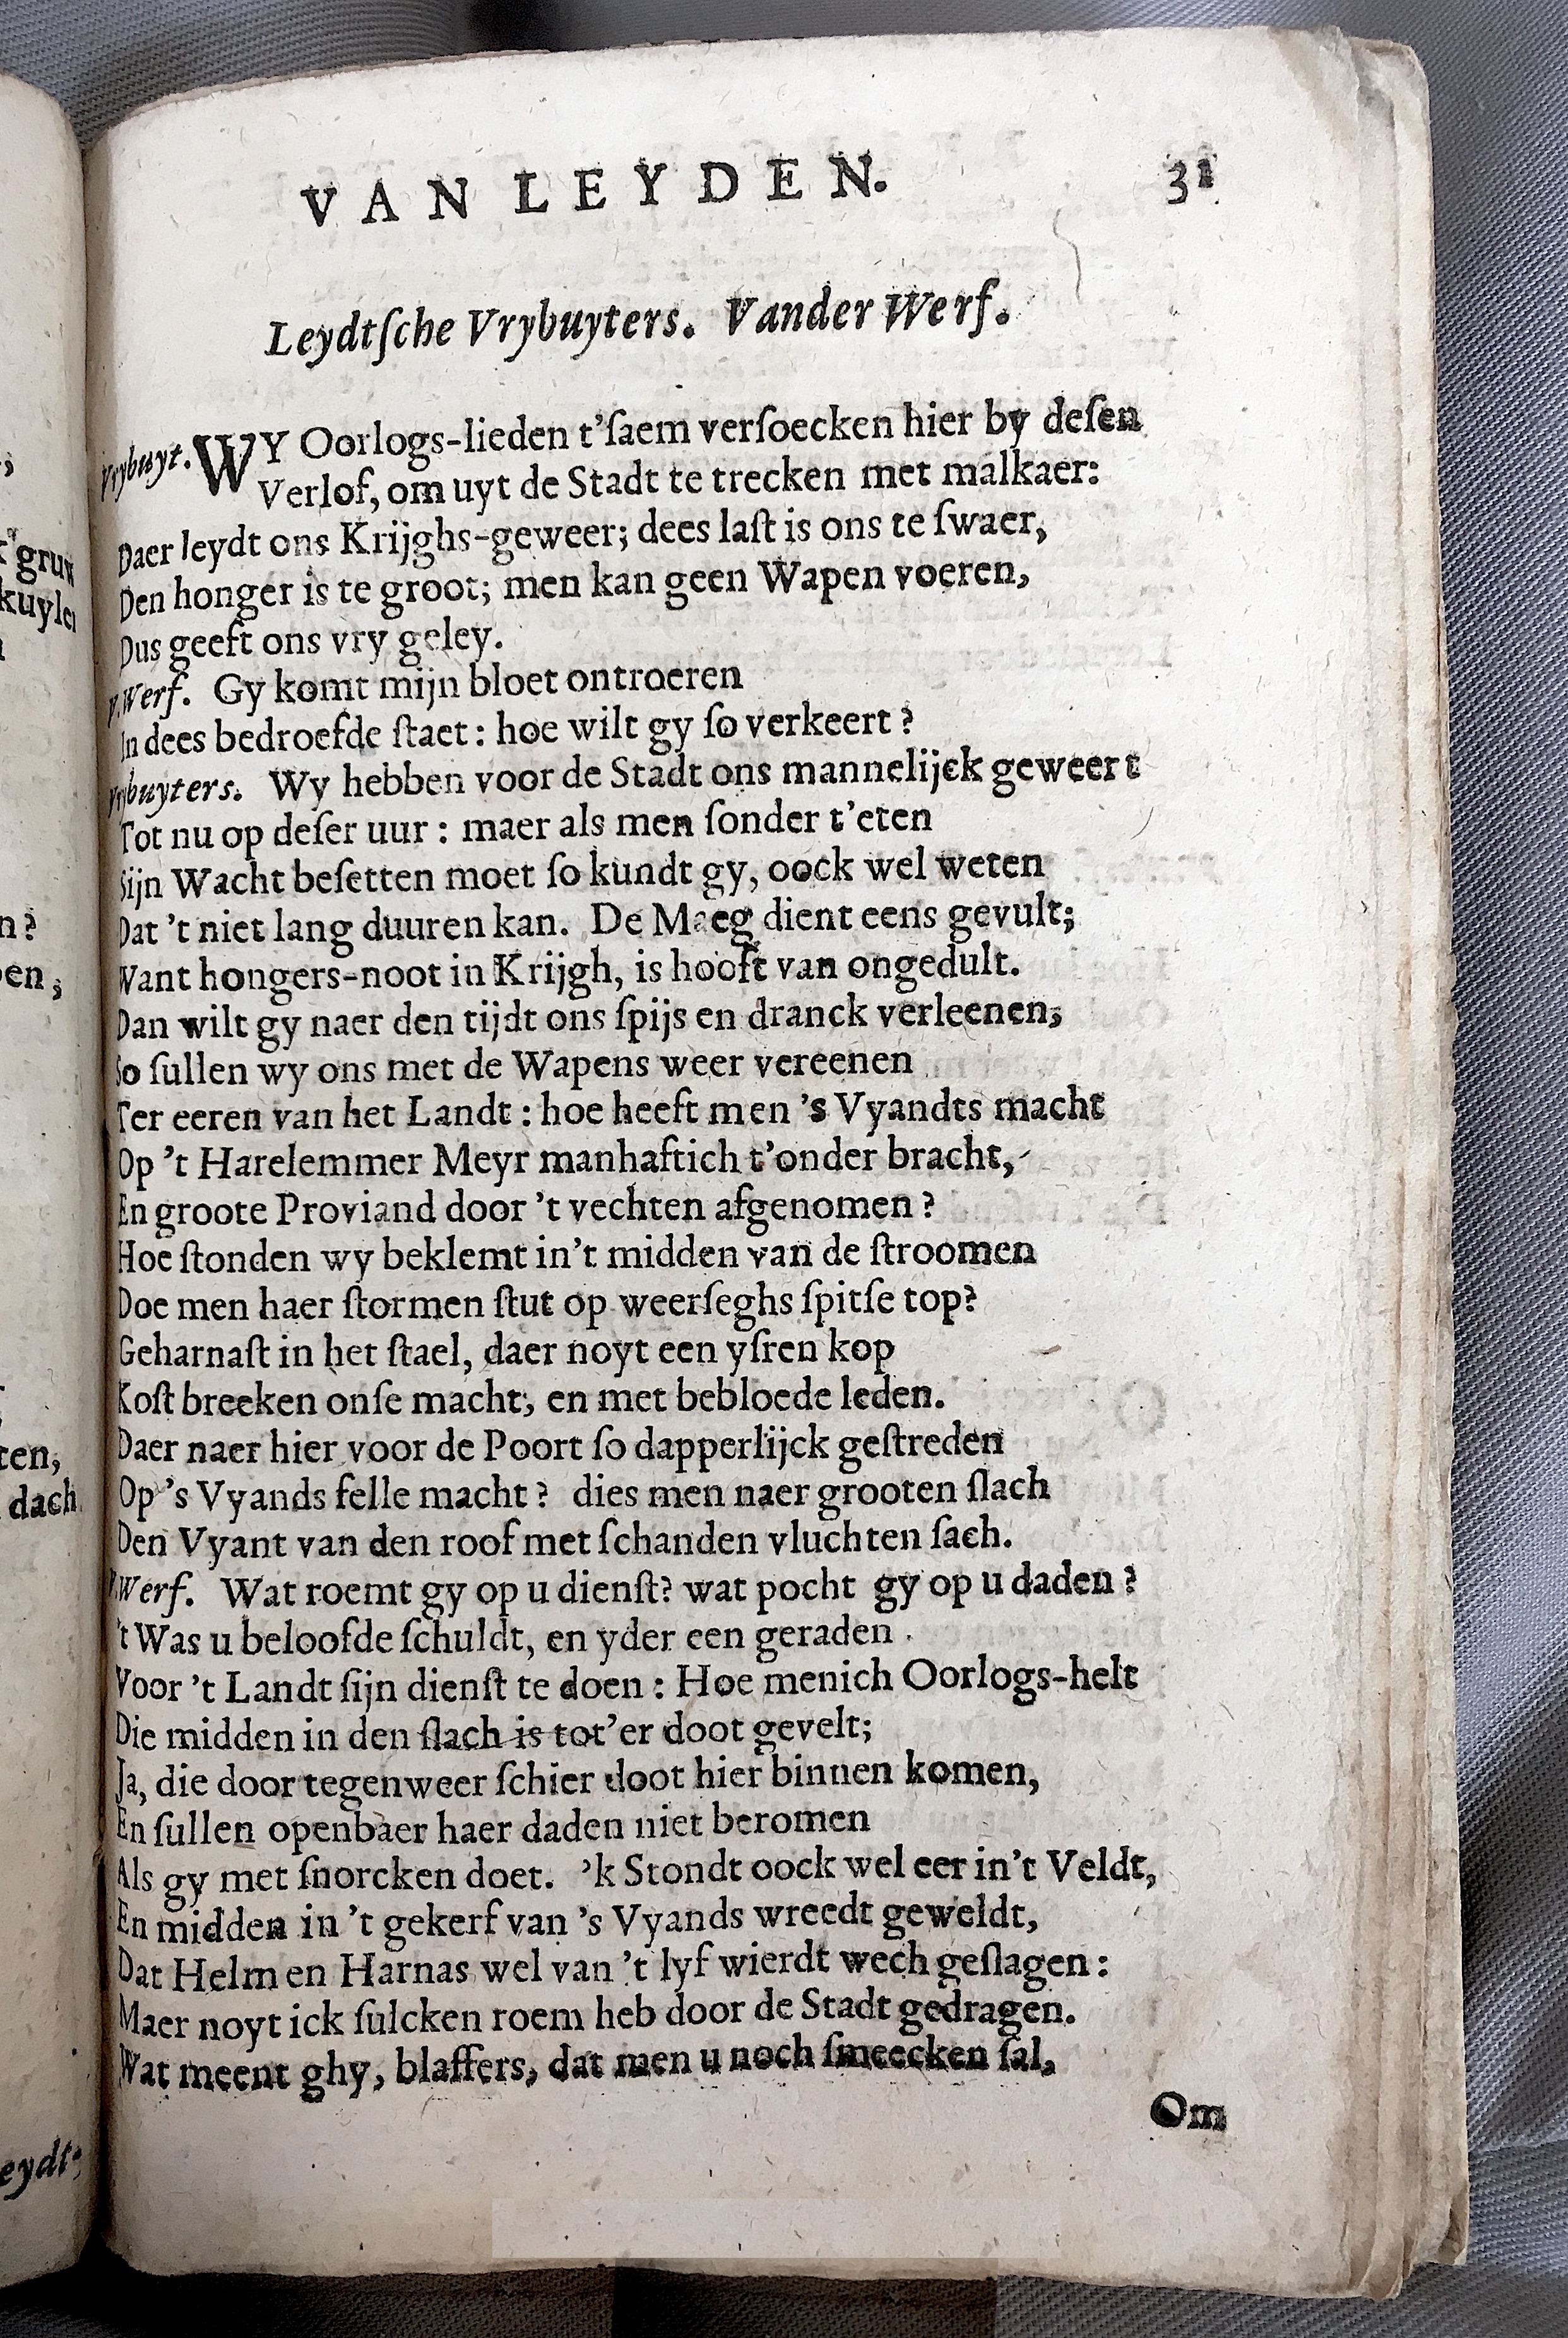 VAN LEYDEN. 31
Leydtſche Vrybuyters. Vander Werf.
Vrybuyt. WY Oorlogs-lieden t'ſaem verſoecken hier by deſen
Verlof, om uyt de Stadt te trecken met malkaer:
Daer leydt ons Krijghs-geweer; dees laſt is ons te ſwaer,
Den honger is te groot; men kan geen Wapen voeren,
Dus geeft ons vry geley.
v.Werf. Gy komt mijn bloet ontroeren
In dees bedroefde ſtaet: hoe wilt gy ſo verkeert?
Vrybuyters. Wy hebben voor de Stadt ons mannelijck geweert
Tot nu op deſer uur: maer als men ſonder t'eten
Sijn Wacht beſetten moet ſo kundt gy, oock wel weten
Dat 't niet lang duuren kan. De Maeg dient eens gevult;
Want hongers-noot in Krijgh, is hooft van ongedult.
Dan wilt gy naer den tijdt ons ſpijs en dranck verleenen;
So ſullen wy ons met de Wapens weer vereenen
Ter eeren van het Landt: hoe heeft men 's Vyandts macht
Op 't Harelemmer Meyr manhaftich t'onder bracht,
En groote Proviand door 't vechten afgenomen?
Hoe ſtonden wy beklemt in't midden van de ſtroomen
Doe men haer ſtormen ſtut op weerſeghs ſpitſe top?
Geharnaſt in het ſtael, daer noyt een yſren kop
Koſt breeken onſe macht; en met bebloede leden.
Daer naer hier voor de Poort ſo dapperlijck geſtreden
Op 's Vyands felle macht? dies men naer grooten ſlach
Den Vyant van den roof met ſchanden vluchten ſach.
v.Werf. Wat roemt gy op u dienſt? wat pocht gy op u daden?
't Was u beloofde ſchuldt, en yder een geraden
Voor 't Landt ſijn dienſt te doen: Hoe menich Oorlogs-helt
Die midden in den ſlach is tot'er doot gevelt;
Ja, die door tegenweer ſchier doot hier binnen komen,
En ſullen openbaer haer daden niet beromen
Als gy met ſnorcken doet. 'k Stondt oock wel eer in't Veldt,
En midden in 't gekerf van 's Vyands wreedt geweldt,
Dat Helm en Harnas wel van 't lyf wierdt wech geſlagen:
Maer noyt ick ſulcken roem heb door de Stadt gedragen.
Wat meent ghy, blaffers, dat men u noch ſmeecken ſal,
Om